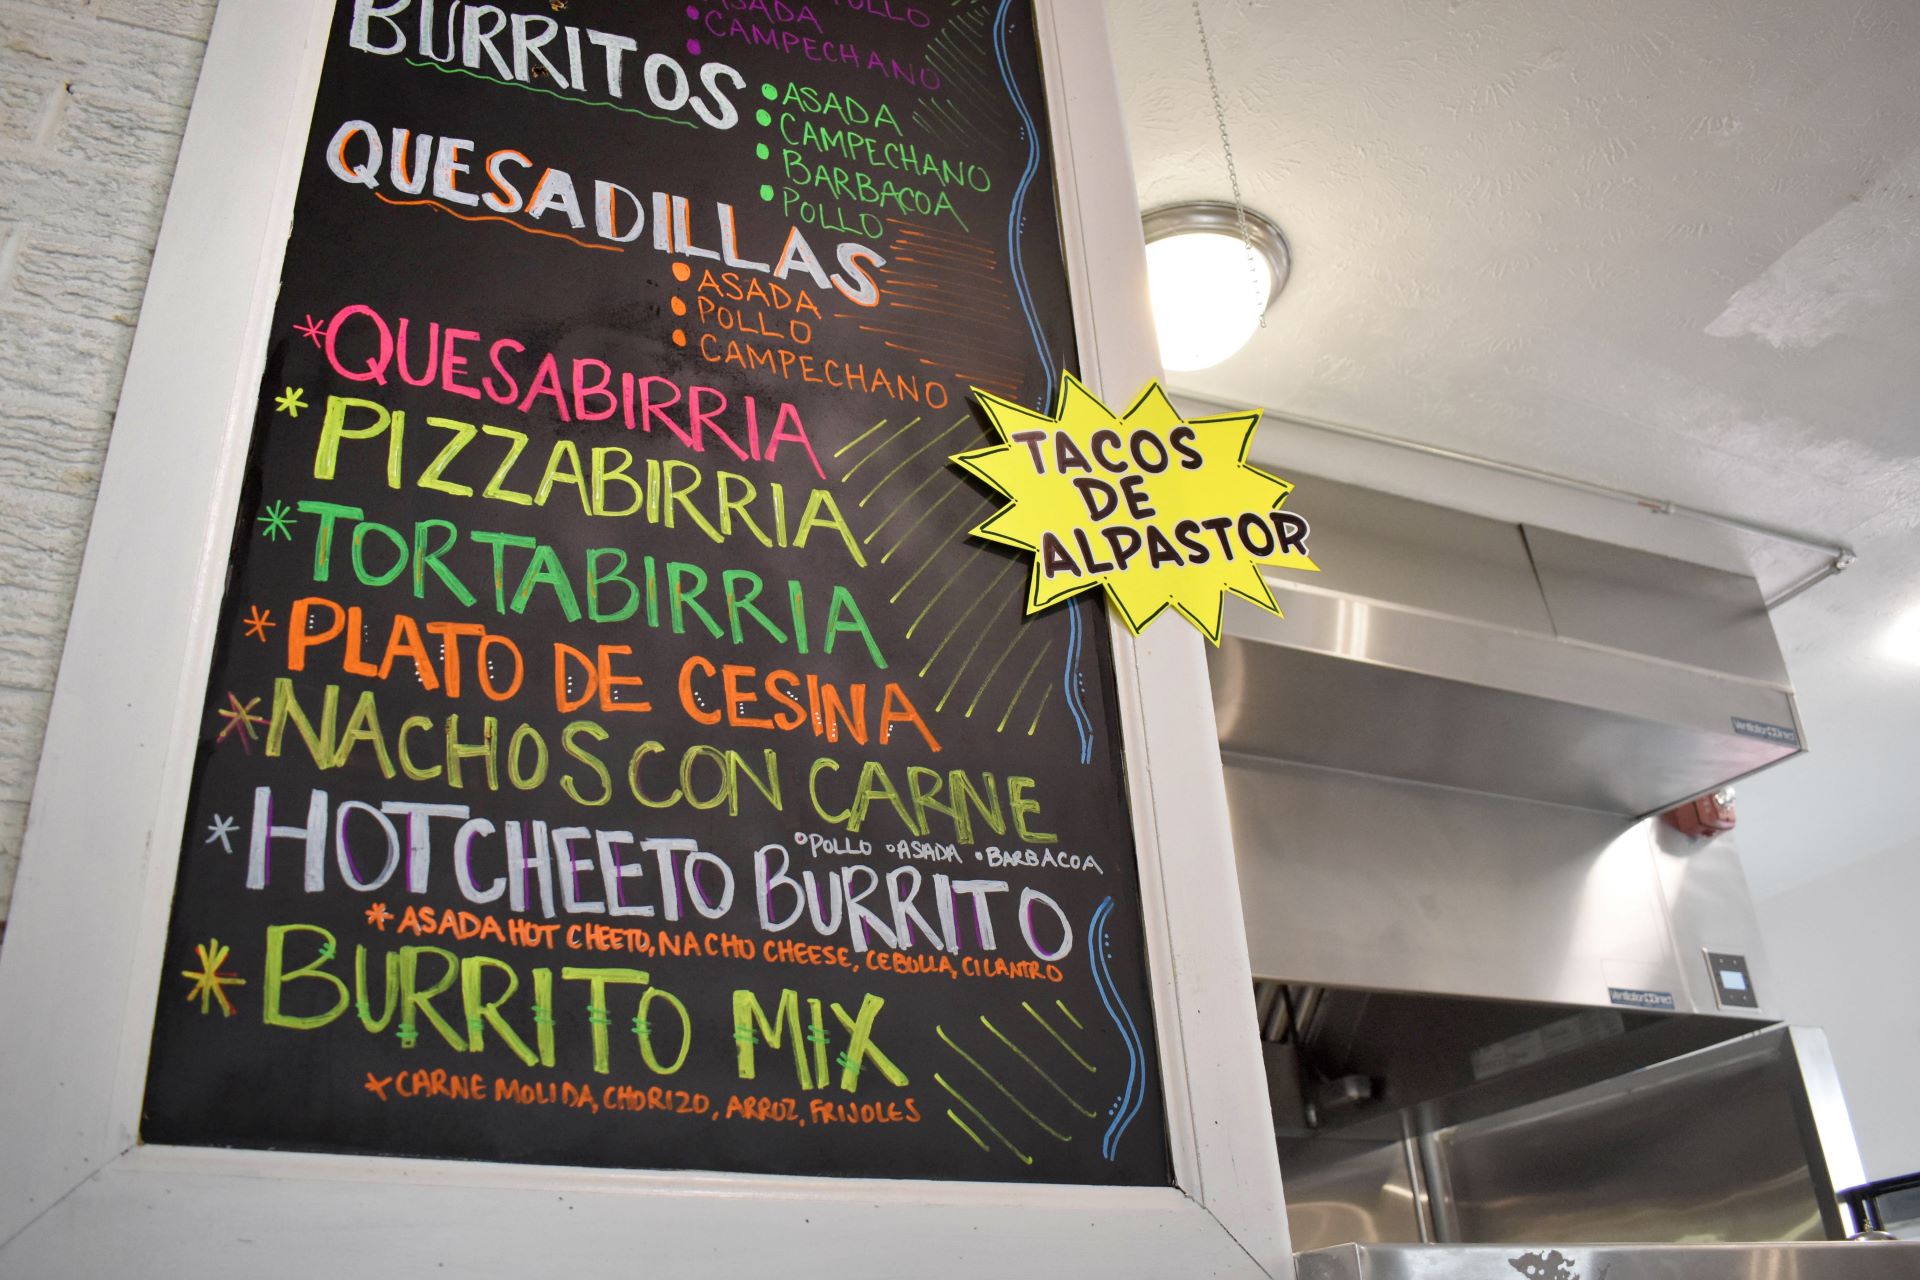 POLLO
ASADA
CAMPECHANO
BURRITOS
ASADA
CAMPECHANO
BARBACOA
POLLO
QUESADILLAS
ASADA
POLLO
CAMPECHANO
*QUESABIRRIA
*PIZZABIRRIA
*TORTABIRRIA
*PLATO DE CESINA
*NACHOS CON CARNE
°POLLO °ASADA •BARBACOA
*HOT CHEETO BURRITO
*ASADA HOT CHEETO, NACHO CHEESE, CEBOLLA, CILANTRO
*BURRITO MIX
*CARNE MOLIDA, CHORIZO, ARROZ, FRIJOLES
TACOS
DE
ALPASTOR
VentilationDirect
VentilationDirect